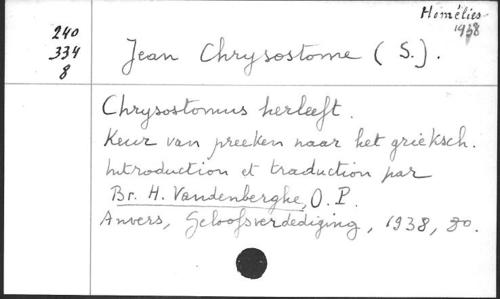 Homélies
1938
240
334
8
Jean Chrysostome (S.).
Chrysostomus herleeft.
Keur van preeken naar het grieksch.
Introduction et traduction par
Br. H. Vandenberghe, O. P.
Anvers, Geloofsverdediging, 1938, 8o.